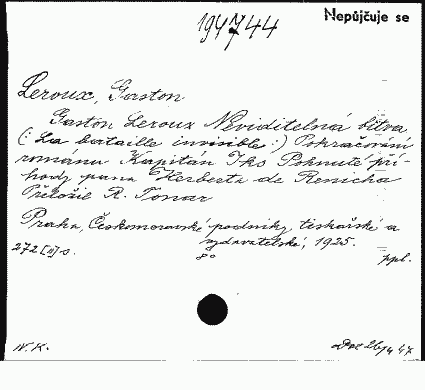 194744
Nepůjčuje se
Leroux, Gaston
Gaston Leroux Neviditelná bitva
(: La bataille invisible :) Pokračování
románu Kapitán Iks Pohnuté pří-
hody pana Herberta de Renicha
Přeložil R. Tonar
Praha, Českomoravské podniky tiskařské a
vydavatelské, 1925.
272 [II] s.
8°
ppl.
N. K.
47